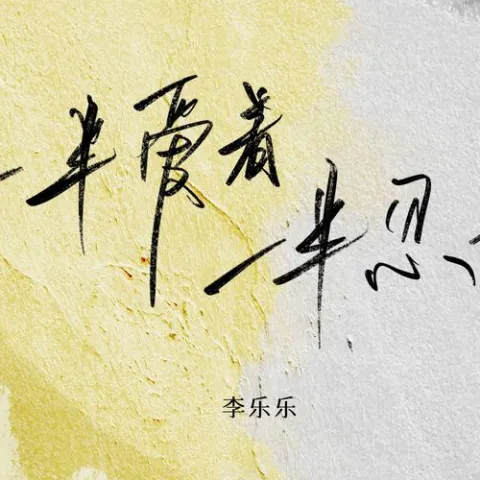 一半爱着
一半忍
李乐乐